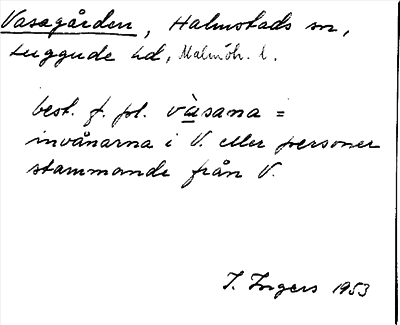 Vasagården, Halmstads sn,
Luggude hd, Malmöh. l.
best. f. pl. vàsana =
invånarna i V. eller personer
stammande från V.
I. Ingers 1953